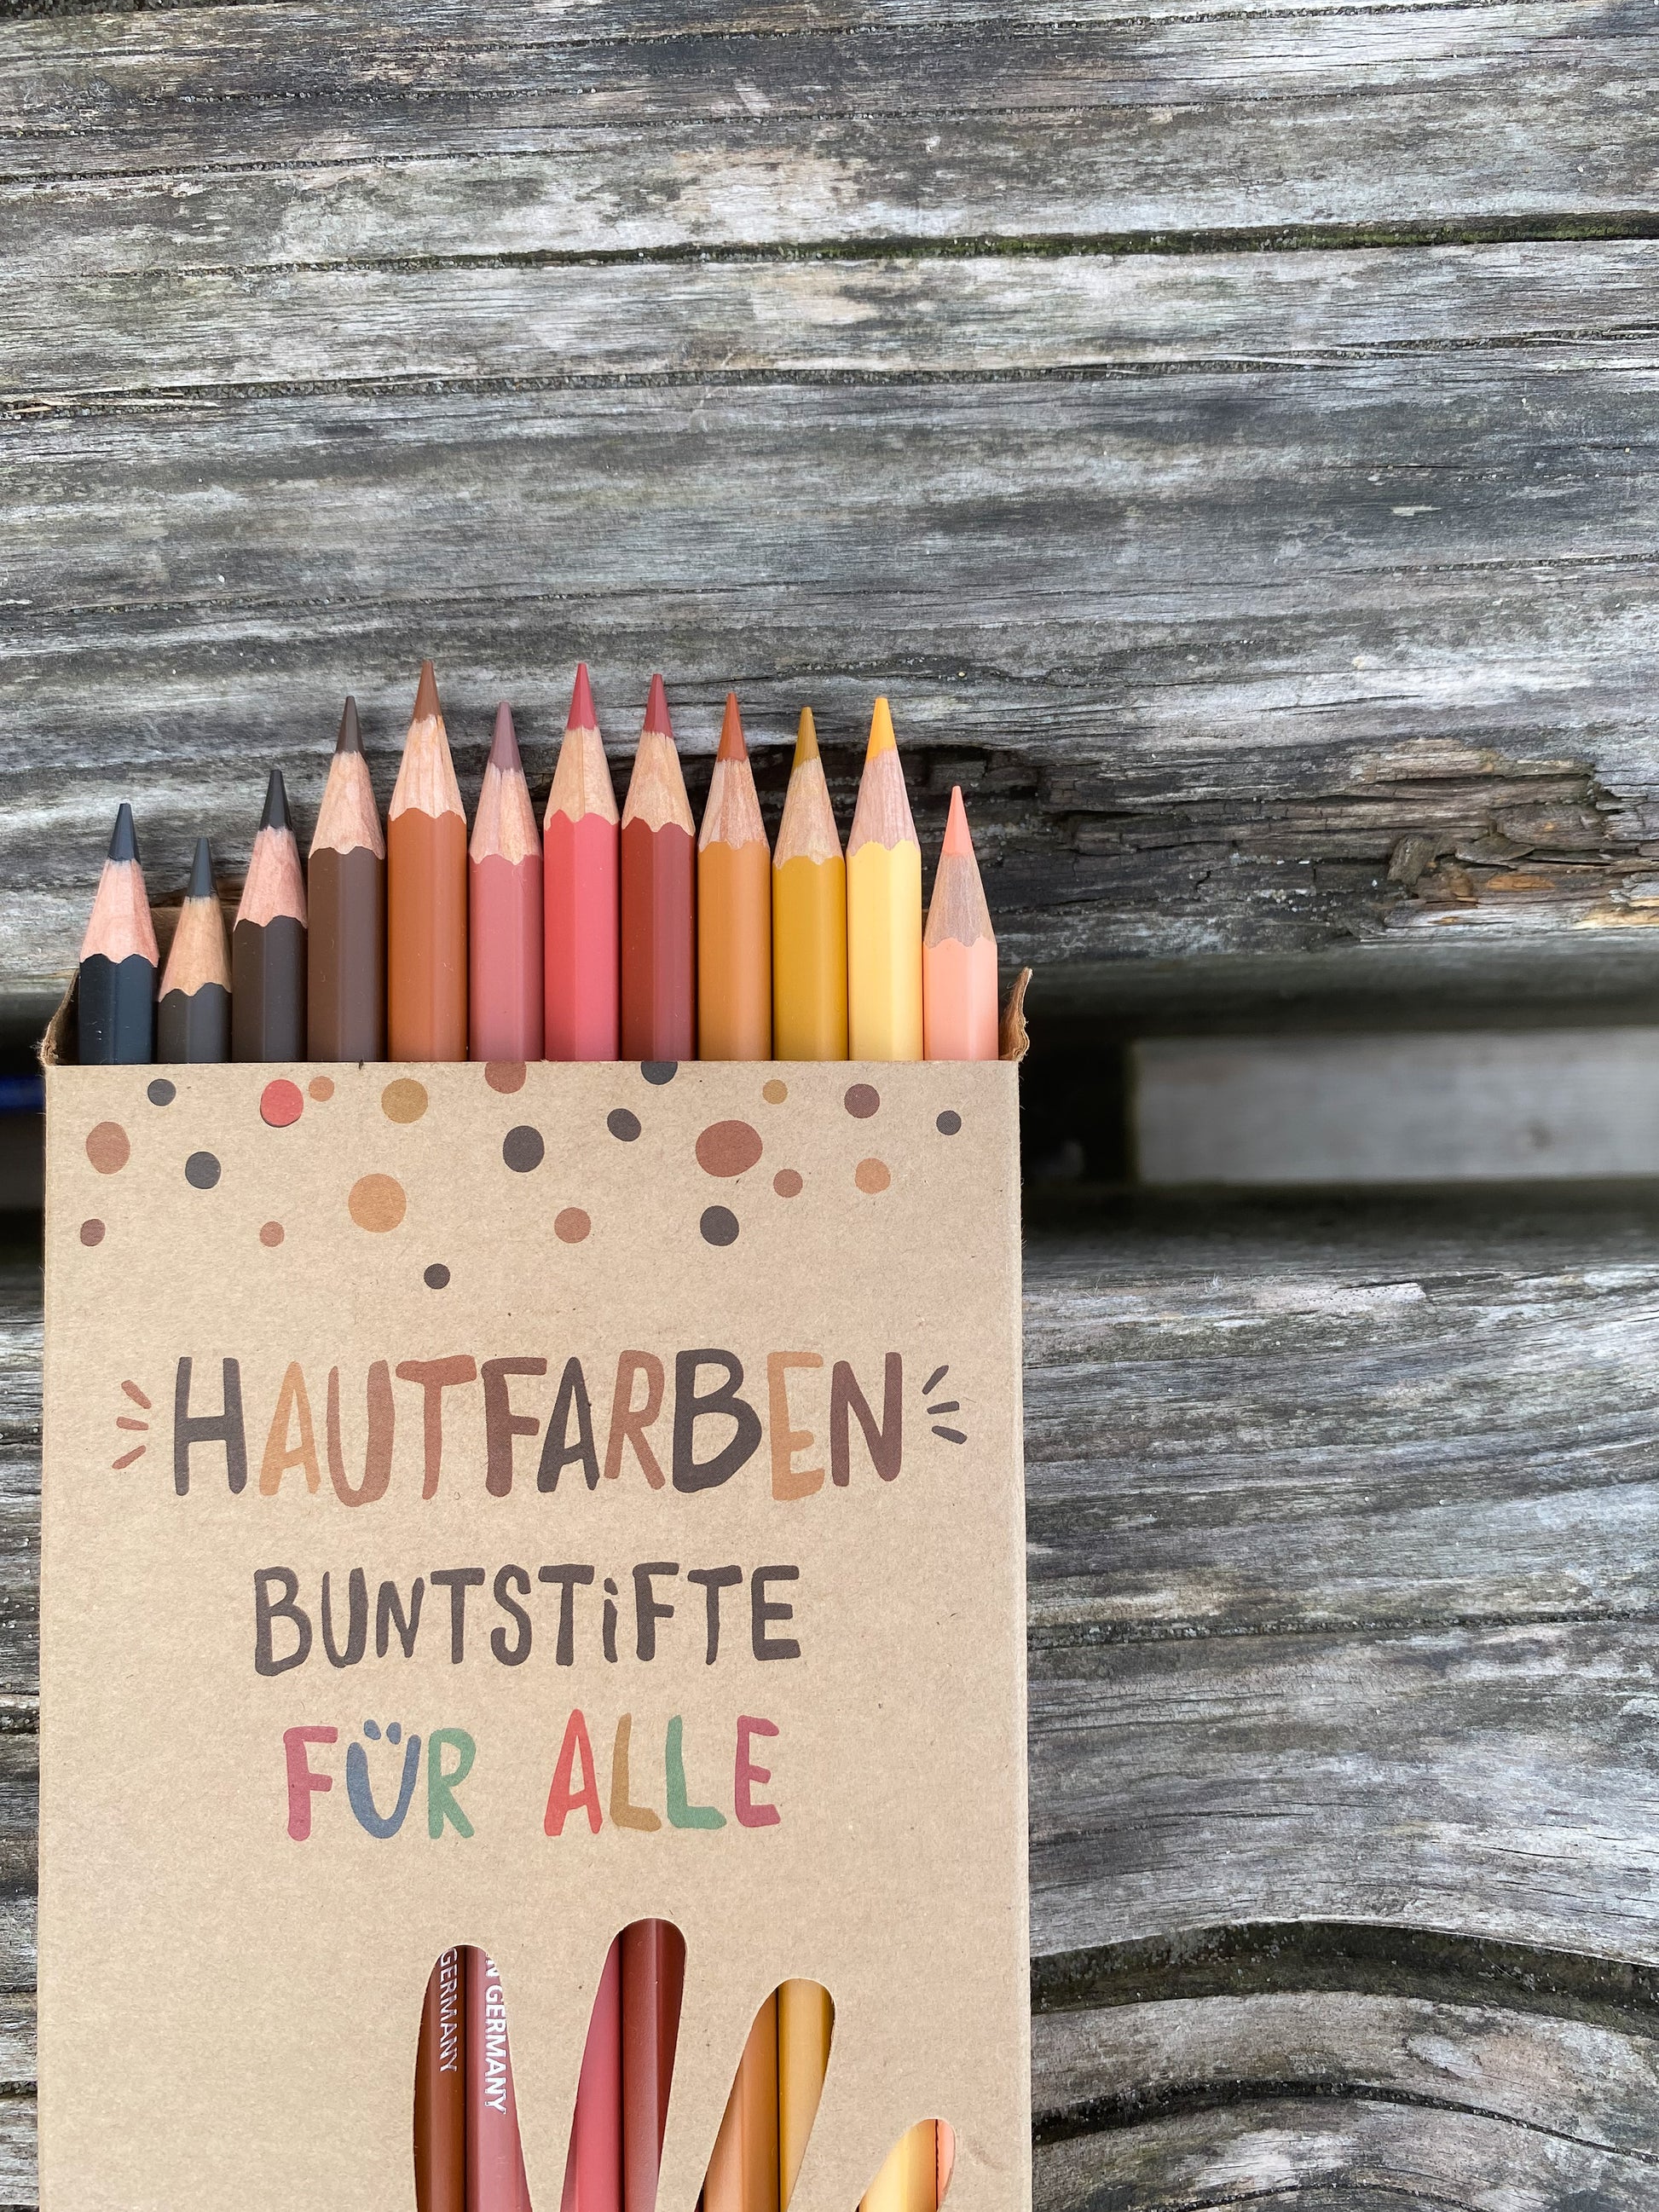 HAUTFARBEN
BUNTSTiFTE
FÜR ALLE
GERMANY
N GERMANY